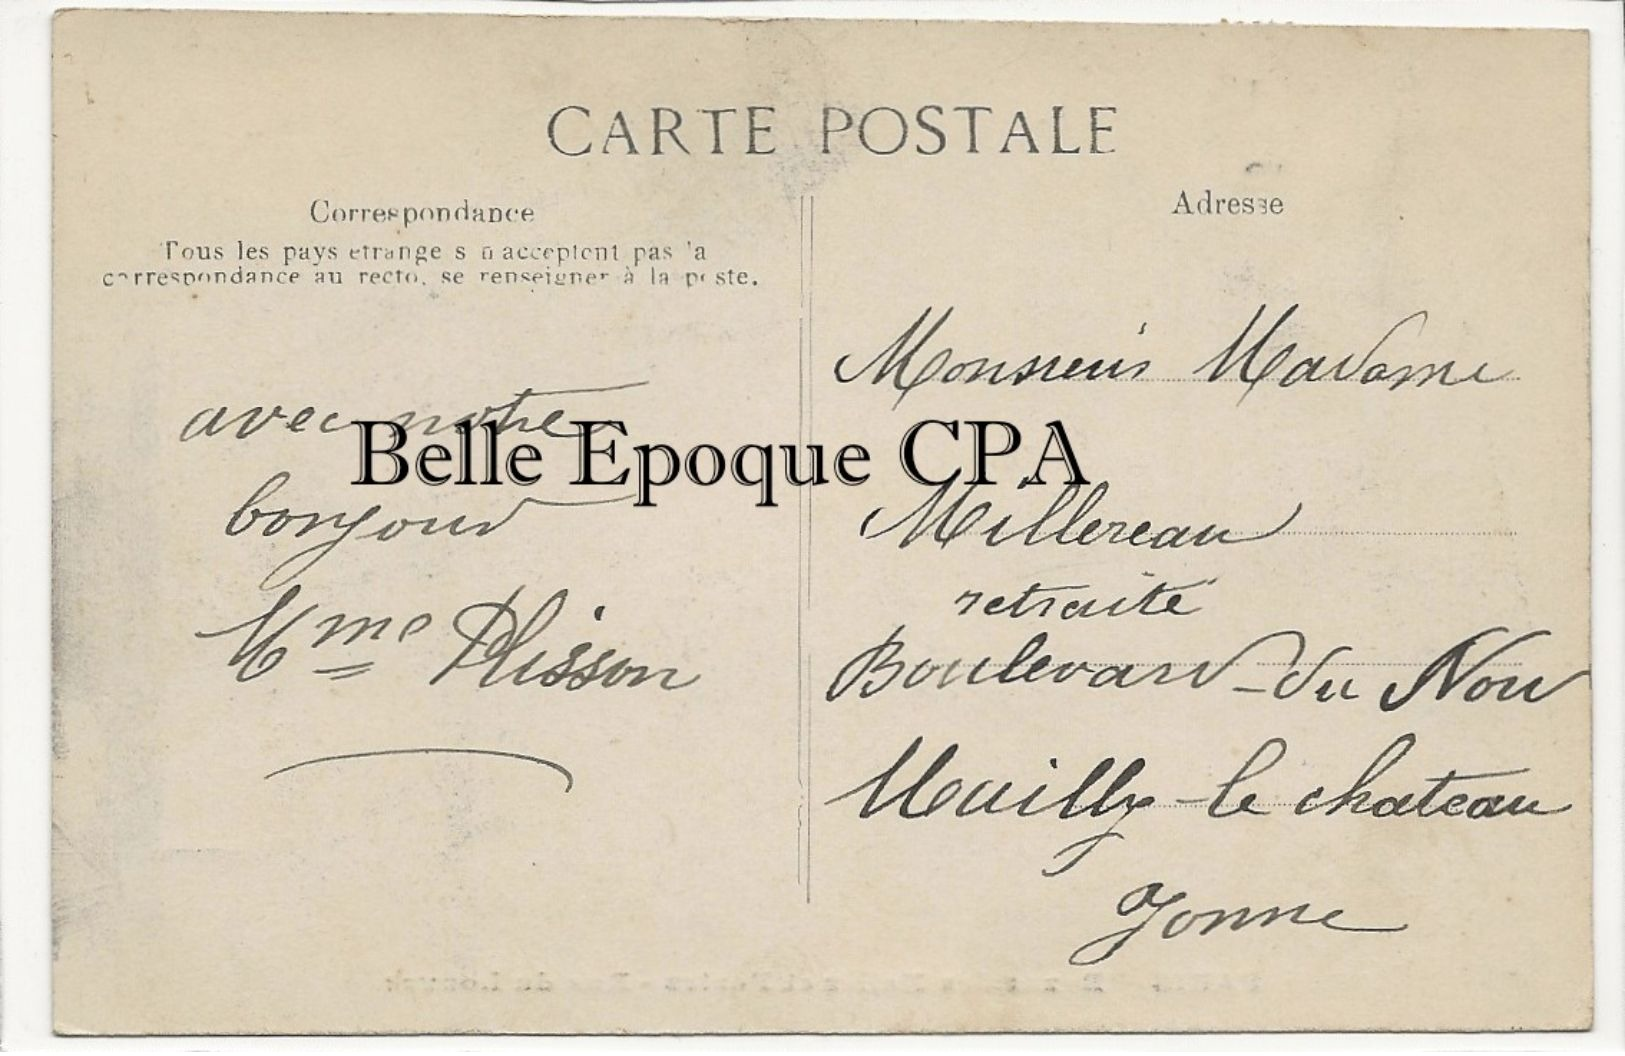 CARTE POSTALE
Correspondance
Tous les pays etrangers n'acceptent pas la
correspondance au recto, se renseigner à la poste.
avec notre
bonjour
Mme Plisson
Adresse
Monsieur Madame
Millereau
retraité
Boulevard du Nord
Mailly-le chateau
Yonne
Belle Epoque CPA